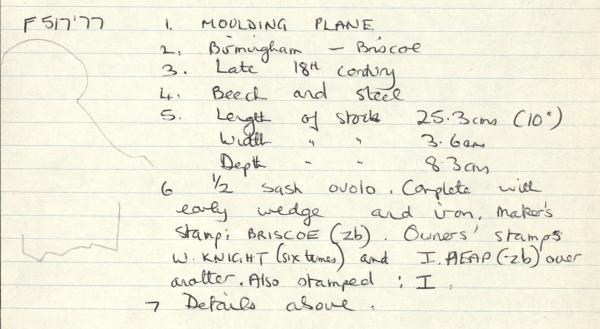 F517'77
1. MOULDING PLANE
2. Birmingham - Briscoe
3. Late 18th century
4. Beech and steel
5. Length of stock 25.3cms (10")
Width " " 3.6cm
Depth " " 8.3cms
6 1/2 sash ovolo. Complete with
early wedge and iron. Maker's
stamp: BRISCOE (-zb). Owners' stamps
W. KNIGHT (six times) and I. HEAP (-zb) over
another. Also stamped : I.
7 Details above.